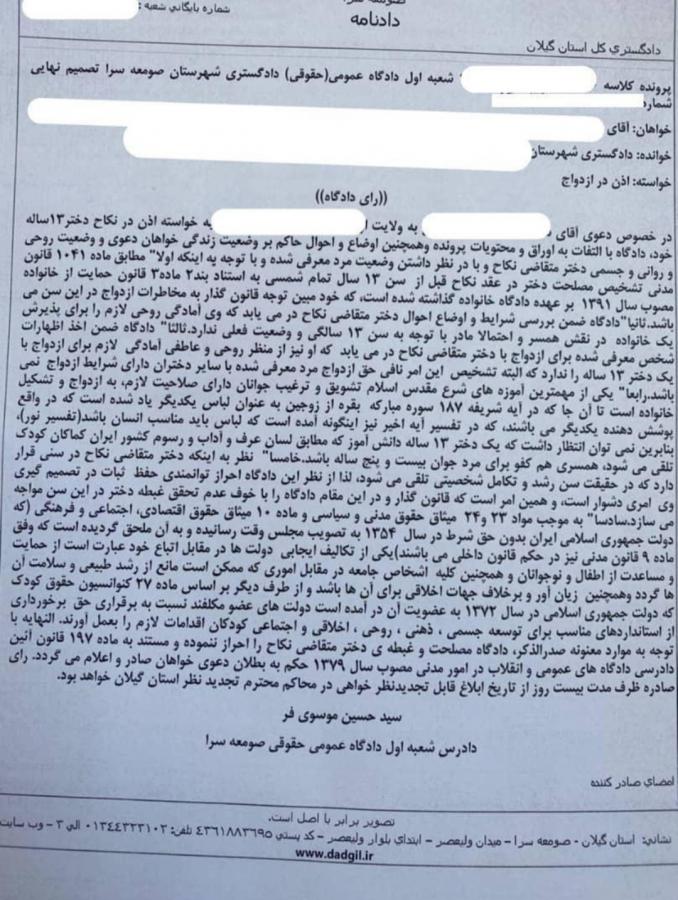 صومعه سرا
شماره بایگاني شعبه :
دادنامه
دادگستري کل استان گیلان
پرونده کلاسه شعبه اول دادگاه عمومی(حقوقی) دادگستری شهرستان صومعه سرا تصمیم نهایی
شماره
خواهان: آقای
خوانده: دادگستری شهرستان
خواسته: اذن در ازدواج
((رای دادگاه))
در خصوص دعوی آقای به ولایت به خواسته اذن در نکاح دختر۱۳ساله
خود، دادگاه با التفات به اوراق و محتویات پرونده وهمچنین اوضاع و احوال حاکم بر وضعیت زندگی خواهان دعوی و وضعیت روحی
و روانی و جسمی دختر متقاضی نکاح و با در نظر داشتن وضعیت مرد معرفی شده و با توجه به اینکه اولا" مطابق ماده ۱۰۴۱ قانون
مدنی تشخیص مصلحت دختر در عقد نکاح قبل از سن ۱۳ سال تمام شمسی به استناد بند۲ ماده۳ قانون حمایت از خانواده
مصوب سال ۱۳۹۱ بر عهده دادگاه خانواده گذاشته شده است، که خود مبین توجه قانون گذار به مخاطرات ازدواج در این سن می
باشد.ثانیا"دادگاه ضمن بررسی شرایط و اوضاع احوال دختر متقاضی نکاح در می یابد که وی آمادگی روحی لازم را برای پذیرش
یک خانواده در نقش همسر و احتمالا مادر با توجه به سن ۱۳ سالگی و وضعیت فعلی ندارد.ثالثا" دادگاه ضمن اخذ اظهارات
شخص معرفی شده برای ازدواج با دختر متقاضی نکاح در می یابد که او نیز از منظر روحی و عاطفی آمادگی لازم برای ازدواج با
یک دختر ۱۳ ساله را ندارد که البته تشخیص این امر نافی حق ازدواج مرد معرفی شده با سایر دختران دارای شرایط ازدواج نمی
باشد.رابعا" یکی از مهمترین آموزه های شرع مقدس اسلام تشویق و ترغیب جوانان دارای صلاحیت لازم، به ازدواج و تشکیل
خانواده است تا آن جا که در آیه شریفه ۱۸۷ سوره مبارکه بقره از زوجین به عنوان لباس یکدیگر یاد شده است که در واقع
پوشش دهنده یکدیگر می باشند، که در تفسیر آیه اخیر نیز اینگونه آمده است که لباس باید مناسب انسان باشد(تفسیر نور)،
بنابرین نمی توان انتظار داشت که یک دختر ۱۳ ساله دانش آموز که مطابق لسان عرف و آداب و رسوم کشور ایران کماکان کودک
تلقی می شود، همسری هم کفو برای مرد جوان بیست و پنج ساله باشد.خامسا" نظر به اینکه دختر متقاضی نکاح در سنی قرار
دارد که در حقیقت سن رشد و تکامل شخصیتی تلقی می شود، لذا از نظر این دادگاه احراز توانمندی حفظ ثبات در تصمیم گیری
وی امری دشوار است، و همین امر است که قانون گذار و در این مقام دادگاه را با خوف عدم تحقق غبطه دختر در این سن مواجه
می سازد.سادسا" به موجب مواد ۲۳ و۲۴ میثاق حقوق مدنی و سیاسی و ماده ۱۰ میثاق حقوق اقتصادی، اجتماعی و فرهنگی (که
دولت جمهوری اسلامی ایران بدون حق شرط در سال ۱۳۵۴ به تصویب مجلس وقت رسانیده و به آن ملحق گردیده است که وفق
ماده ۹ قانون مدنی نیز در حکم قانون داخلی می باشند)یکی از تکالیف ایجابی دولت ها در مقابل اتباع خود عبارت است از حمایت
و مساعدت از اطفال و نوجوانان و همچنین کلیه اشخاص جامعه در مقابل اموری که ممکن است مانع از رشد طبیعی و سلامت آن
ها گردد وهمچنین زیان آور و برخلاف جهات اخلاقی برای آن ها باشد و از طرف دیگر بر اساس ماده ۲۷ کنوانسیون حقوق کودک
که دولت جمهوری اسلامی در سال ۱۳۷۲ به عضویت آن در آمده است دولت های عضو مکلفند نسبت به برقراری حق برخورداری
از استانداردهای مناسب برای توسعه جسمی ، ذهنی ، روحی ، اخلاقی و اجتماعی کودکان اقدامات لازم را بعمل آورند. النهایه با
توجه به موارد معنونه صدرالذکر، دادگاه مصلحت و غبطه ی دختر متقاضی نکاح را احراز ننموده و مستند به ماده ۱۹۷ قانون آئین
دادرسی دادگاه های عمومی و انقلاب در امور مدنی مصوب سال ۱۳۷۹ حکم به بطلان دعوی خواهان صادر و اعلام می گردد. رای
صادره ظرف مدت بیست روز از تاریخ ابلاغ قابل تجدیدنظر خواهی در محاکم محترم تجدید نظر استان گیلان خواهد بود.
سید حسین موسوی فر
دادرس شعبه اول دادگاه عمومی حقوقی صومعه سرا
امضاي صادر کننده
تصویر برابر با اصل است.
نشاني: استان گیلان - صومعه سرا – میدان ولیعصر – ابتداي بلوار ولیعصر – کد پستي ۴۳۶۱۸۸۳۶۹۵ تلفن: ۰۱۳۴۴۳۲۳۱۰۲ الي ۳ - وب سایت
www.dadgil.ir